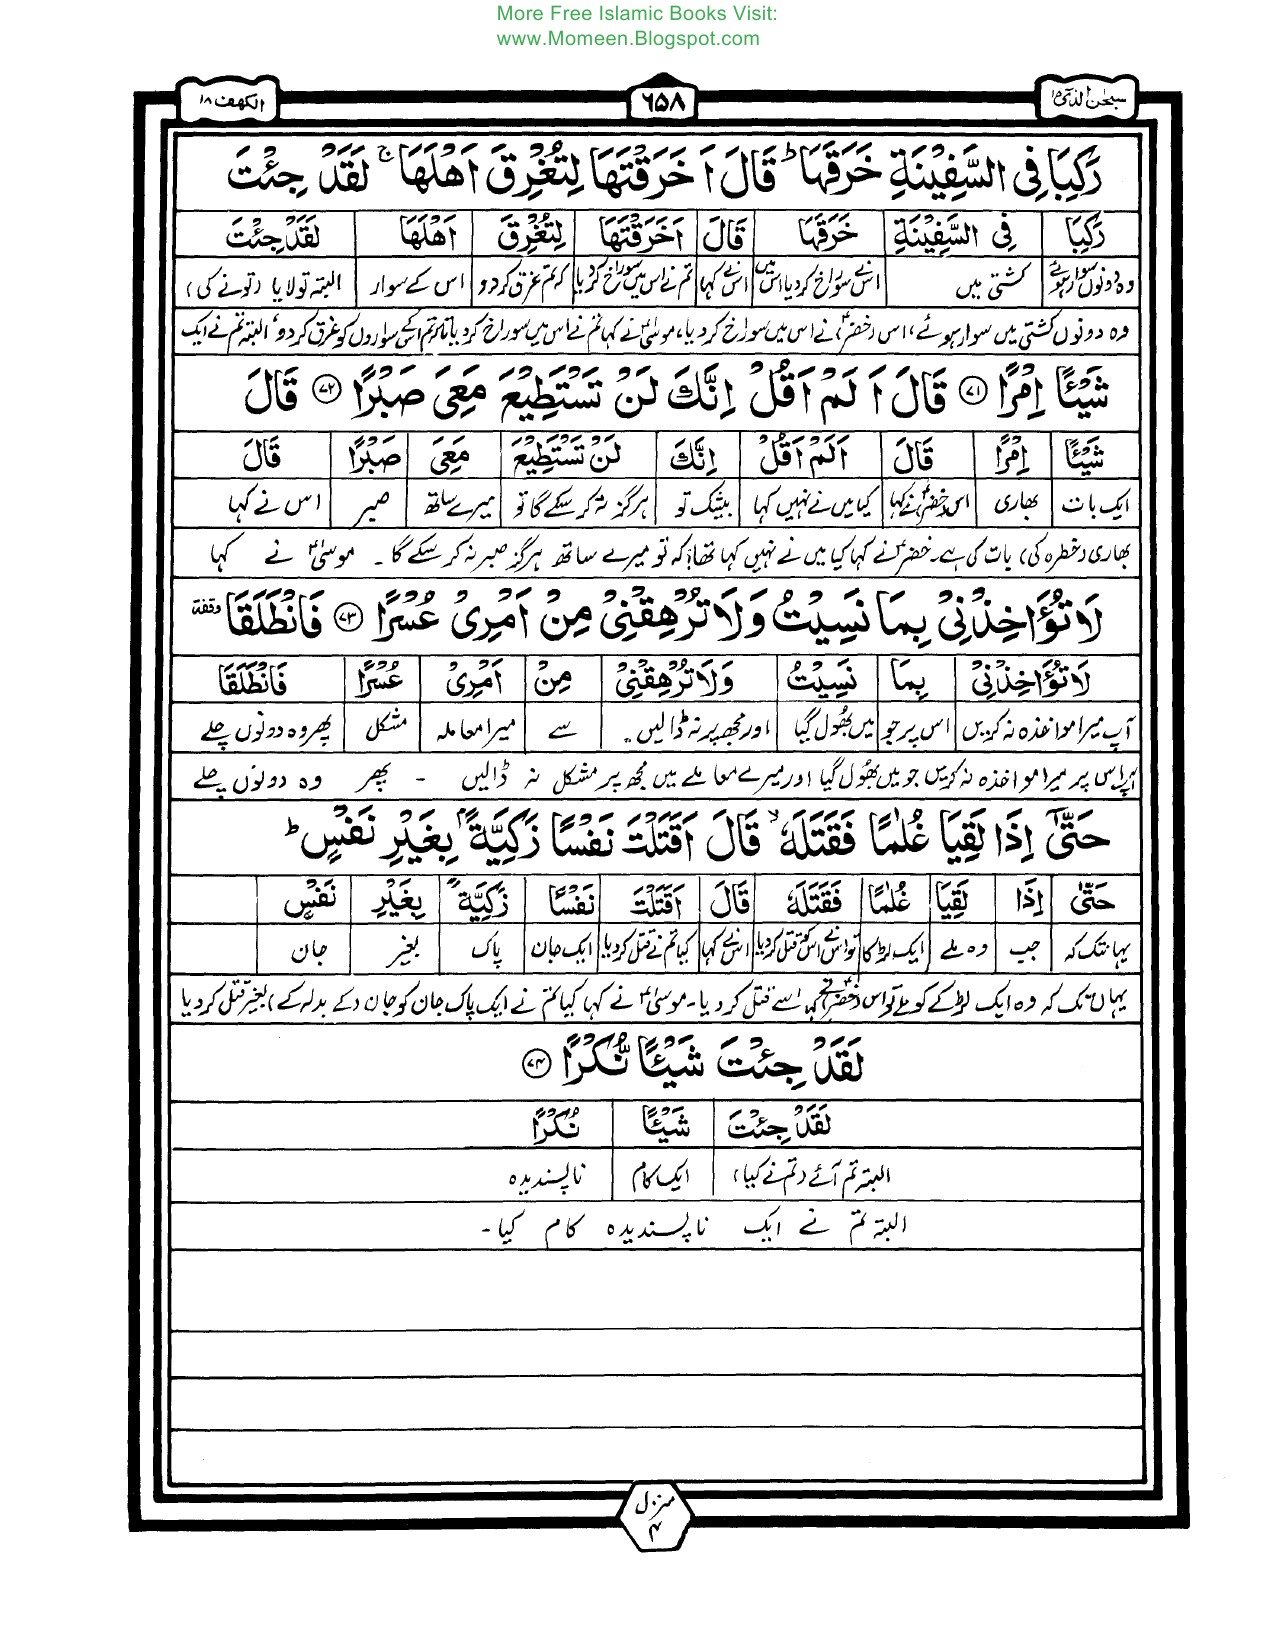 More Free Islamic Books Visit:
www.Momeen.Blogspot.com
سبحٰن الذی ۱۵ ۶۵۸ الکهف ۱۸
رَکِبَا فِی السَّفِیْنَةِ خَرَقَهَا ؕ قَالَ اَخَرَقْتَهَا لِتُغْرِقَ اَهْلَهَا ۚ لَقَدْ جِئْتَ
رَکِبَا فِی السَّفِیْنَةِ خَرَقَهَا قَالَ اَخَرَقْتَهَا لِتُغْرِقَ اَهْلَهَا لَقَدْ جِئْتَ
وہ دونوں سوار ہوئے کشتی میں اس نے سوراخ کردیا اس میں اس نے کہا تم نے اس میں سوراخ کردیا کہ تم غرق کردو اس کے سوار البتہ تو لایا (تونے کی)
وہ دونوں کشتی میں سوار ہوئے، اس (خضرؑ) نے اس میں سوراخ کر دیا، موسیٰؑ نے کہا تم نے اس میں سوراخ کردیا تاکہ تم اسکے سواروں کو غرق کردو، البتہ تم نے ایک
شَیْـًٔا اِمْرًا ﴿۷۱﴾ قَالَ اَلَمْ اَقُلْ اِنَّکَ لَنْ تَسْتَطِیْعَ مَعِیَ صَبْرًا ﴿۷۲﴾ قَالَ
شَیْـًٔا اِمْرًا قَالَ اَلَمْ اَقُلْ اِنَّکَ لَنْ تَسْتَطِیْعَ مَعِیَ صَبْرًا قَالَ
ایک بات بھاری اس (خضرؑ) نے کہا کیا میں نے نہیں کہا بیشک تو ہرگز نہ کر سکے گا تو میرے ساتھ صبر اس نے کہا
بھاری (خطرہ کی) بات کی ہے۔ خضرؑ نے کہا کیا میں نے نہیں کہا تھا؟ کہ تو میرے ساتھ ہرگز صبر نہ کر سکے گا۔ موسیٰؑ نے کہا
لَا تُؤَاخِذْنِیْ بِمَا نَسِیْتُ وَلَا تُرْهِقْنِیْ مِنْ اَمْرِیْ عُسْرًا ﴿۷۳﴾ فَانْطَلَقَا وقفة
لَا تُؤَاخِذْنِیْ بِمَا نَسِیْتُ وَلَا تُرْهِقْنِیْ مِنْ اَمْرِیْ عُسْرًا فَانْطَلَقَا
آپ میرا مواخذہ نہ کریں اس پر جو میں بھول گیا اور مجھ پر نہ ڈالیں۔ سے میرا معاملہ مشکل پھر وہ دونوں چلے
آپ اس پر میرا مواخذہ نہ کریں جو میں بھول گیا اور میرے معاملے میں مجھ پر مشکل نہ ڈالیں ۔ پھر وہ دونوں چلے
حَتّٰۤی اِذَا لَقِیَا غُلٰمًا فَقَتَلَهٗ ۙ قَالَ اَقَتَلْتَ نَفْسًا زَکِیَّةًۢ بِغَیْرِ نَفْسٍ ؕ
حَتّٰی اِذَا لَقِیَا غُلٰمًا فَقَتَلَهٗ قَالَ اَقَتَلْتَ نَفْسًا زَکِیَّةً بِغَیْرِ نَفْسٍ
یہانتک کہ جب وہ ملے ایک لڑکا تو اس نے اس کو قتل کردیا اس نے کہا کیا تم نے قتل کردیا ایک جان پاک بغیر جان
یہاں تک کہ وہ ایک لڑکے کو ملے تو اس (خضرؑ) نے اسے قتل کر دیا۔ موسیٰؑ نے کہا کیا تم نے ایک پاک جان کو جان (کے بدلہ کے) بغیر قتل کردیا
لَقَدْ جِئْتَ شَیْـًٔا نُّکْرًا ﴿۷۴﴾
لَقَدْ جِئْتَ شَیْـًٔا نُکْرًا
البتہ تم آئے (تم نے کیا) ایک کام ناپسندیدہ
البتہ تم نے ایک ناپسندیدہ کام کیا۔
منزل
۴